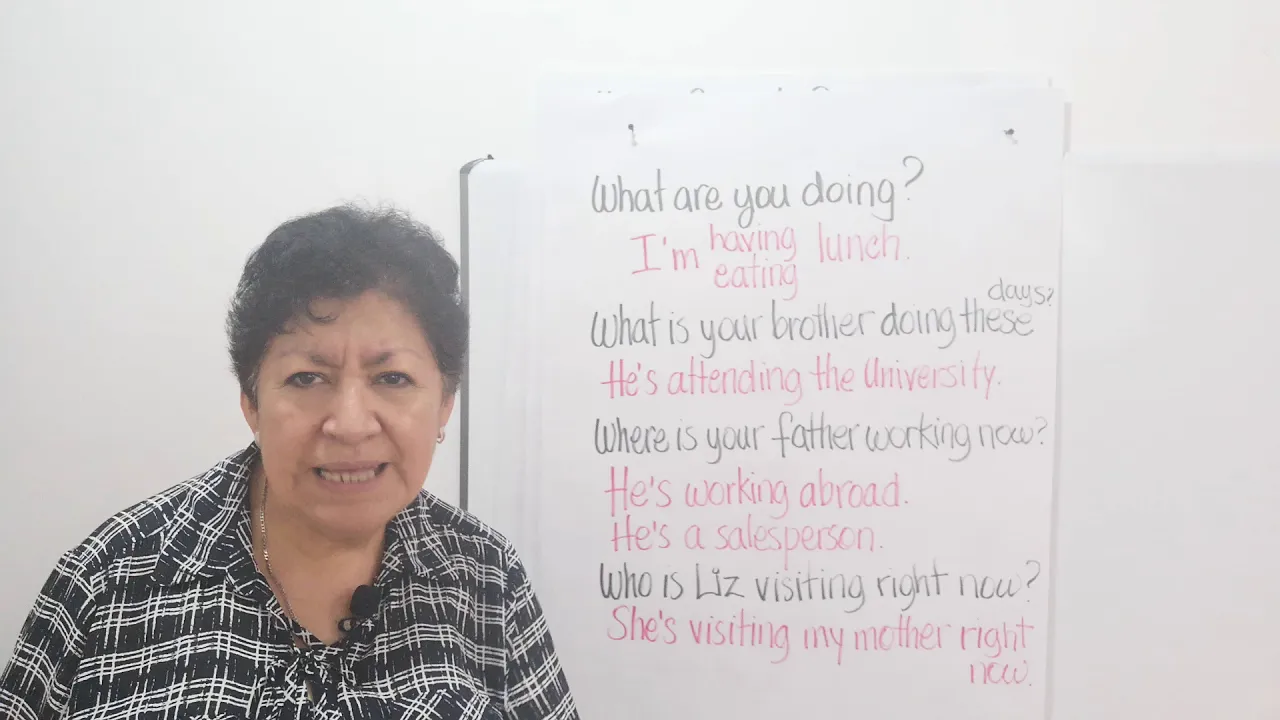 What are you doing?
I'm having lunch.
eating
What is your brother doing these
days?
He's attending the University.
Where is your father working now?
He's working abroad.
He's a salesperson.
Who is Liz visiting right now?
She's visiting my mother right
now.